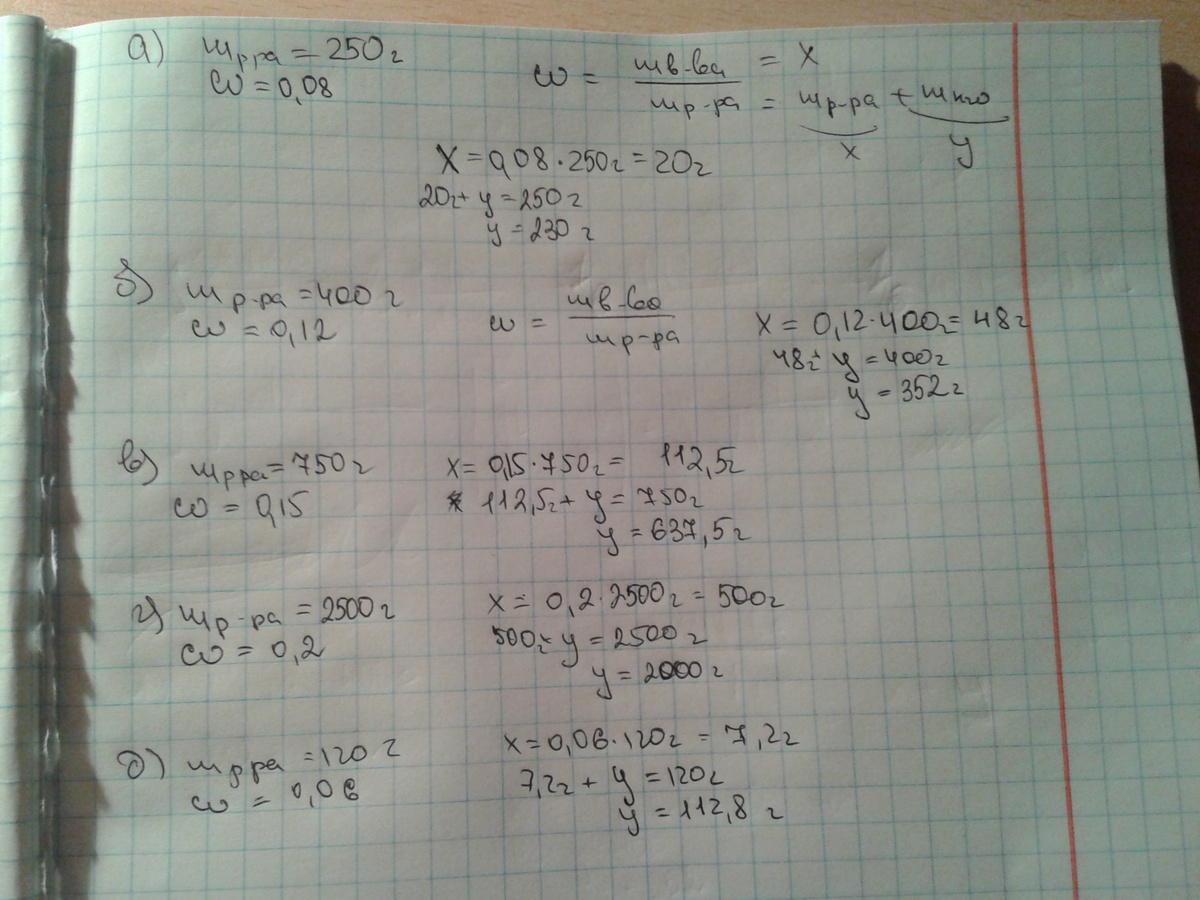 а) mр-ра = 250г
ω = 0,08
ω = mв-ва / mр-ра = x
= mр-ра + mH2O
x y
X = 0,08 · 250г = 20г
20г + y = 250г
y = 230 г
б) mр-ра = 400 г
ω = 0,12
ω = mв-ва / mр-ра
X = 0,12·400г = 48г
48г + y = 400г
y = 352 г
в) mр-ра = 750 г
ω = 0,15
x = 0,15·750г = 112,5г
112,5г + y = 750г
y = 637,5г
г) mр-ра = 2500 г
ω = 0,2
x = 0,2·2500г = 500г
500г + y = 2500 г
y = 2000 г
д) mр-ра = 120 г
ω = 0,06
x = 0,06·120г = 7,2г
7,2г + y = 120г
y = 112,8 г